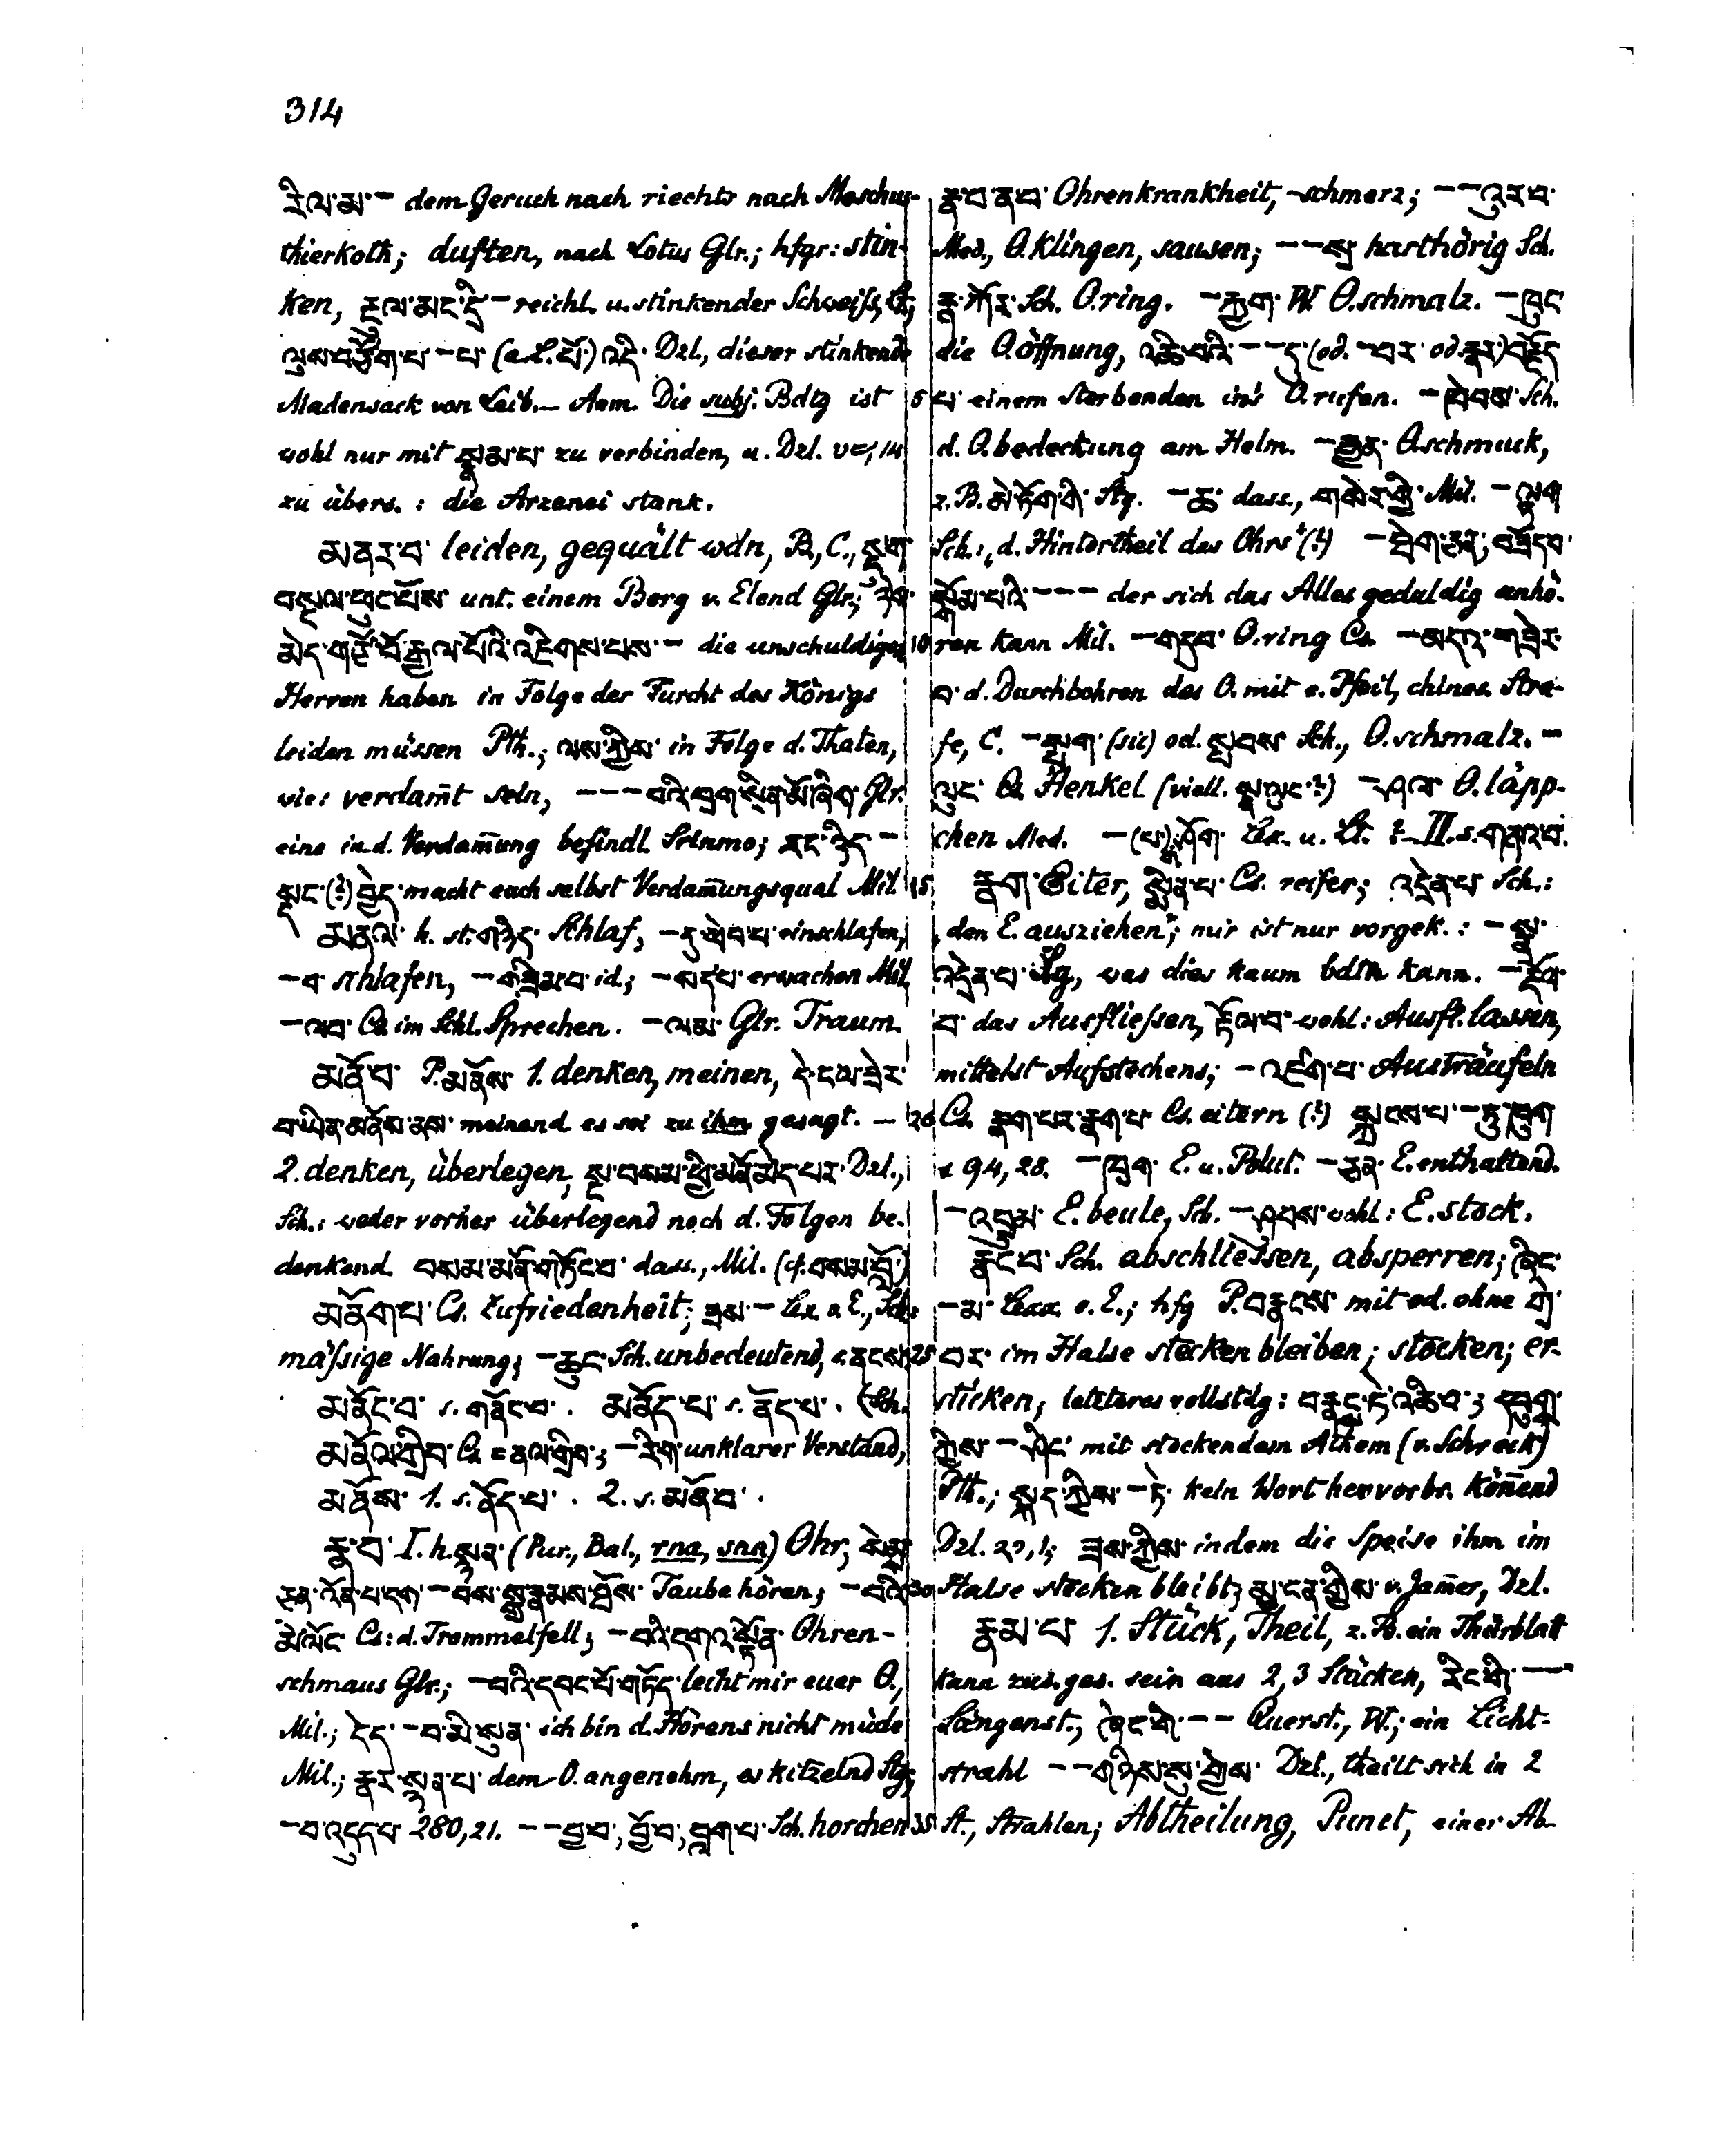 314
རིལ་མ་– dem Geruch nach riechts nach Moschus-
thierkoth; duften, nach Lotus Glr.; hfgr: stin-
ken, རྔུལ་མང་དྲི་– reichl. u. stinkender Schweiß,
(a.L. པོ་) འདི་ Dzl., dieser stinkende
Madensack von Leib. – Anm. Die subj. Bdtg ist
wohl nur mit སྣམ་པ་ zu verbinden, u. Dzl. 14
zu übers.: die Arzenei stank.
མནར་བ་ leiden, gequält wdn, B., C., སྡུག་
བསྔལ་ཕུང་པོས་ unt. einem Berg v. Elend Glr.;
མེད་གཙོ་བོ་རྒྱལ་པོའི་འཇིགས་པས་– die unschuldigen
Herren haben in Folge der Furcht des Königs
leiden müssen Pth.; ལས་ཀྱིས་ in Folge d. Thaten,
wie: verdam̄t sein, –––བའི་བྲག་སྲིན་མོ་ཞིག་ Glr.
eine in d. Verdam̄ung befindl. Srinmo; རང་ཉིད་–
སྡང་(?) བྱེད་ macht euch selbst Verdam̄ungsqual Mil
མནལ་ h. st. གཉིད་ Schlaf, –དུ་ཕེབ་པ་ einschlafen,
–བ་ schlafen, –གཟིམ་བ་ id.; –སད་པ་ erwachen Mil,
–ལབ་ Cs im Schl. Sprechen. –ལམ་ Glr. Traum.
མནོ་བ་ P. མནོས་ 1. denken, meinen, དེ་ངལ་ཟེར་
བ་ཡིན་མནོས་ནས་ meinend es sei zu ihm gesagt. –
2. denken, überlegen, སྔ་བསམ་ཕྱི་མནོ་མེད་པར་ Dzl.,
Sch.: weder vorher überlegend noch d. Folgen be-
denkend. བསམ་མནོ་གཏོང་བ་ dass., Mil. (cf. བསམ་བློ་)
མནོག་པ་ Cs. Zufriedenheit; ཟས་– Lex. o. E., Sch.:
mäßige Nahrung; –ཆུང་ Sch. unbedeutend,
མནོང་བ་ s. གནོང་བ་. མནོད་པ་ s. ནོད་པ་. (Sch.
མནོལ་གྲིབ་ Cs = ནལ་གྲིབ་; –རིག་ unklarer Verstand,
མནོས་ 1. s. ནོད་པ་. 2. s. མནོ་བ་.
རྣ་བ་ I. h. སྙན་ (Pur., Bal., rna, sna) Ohr,
Taube hören; –བའི་
མེ་ལོང་ Cs: d. Trommelfell; –བའི་དགའ་སྟོན་ Ohren-
schmaus Glr.; –བའི་དབང་པོ་གཏོད་ leiht mir euer O.,
Mil.; དེད་–བ་མི་སུན་ ich bin d. Hörens nicht müde
Mil.; རྣར་སྙན་པ་ dem O. angenehm, es kitzelnd Stg;
–བ་འདུད་པ་ 280,21. ––བྱ་བ་, བྱོ་བ་, བླག་པ་ Sch. horchen
རྣ་བ་ནབ་ Ohrenkrankheit, -schmerz; ––འུར་བ་
Med., O. klingen, sausen; ––སྲ་ harthörig Sch.
རྣ་ཀོར་ Sch. O.ring. –རྐྱག་ W. O.schmalz. –ཁུང་
die O.öffnung, འཆི་བའི་––དུ་ (od. –བར་ od. རྣར་) བརྗོད་
5 པ་ einem Sterbenden ins O. rufen. –ཁེབས་ Sch.
d. O.bedeckung am Helm. –རྒྱན་ O.schmuck,
z.B. མེ་ཏོག་གི་ Stg. –ཆ་ dass., གསེར་གྱི་ Mil. –ལྟག་
Sch.: „d. Hintertheil des Ohrs“ (?)
སྒོམ་པའི་––– der sich das Alles geduldig anhö-
10 ren kann Mil. –གདུབ་ O.ring Cs. –མདའ་གཟེར་
བ་ d. Durchbohren des O. mit e. Pfeil, chines. Stra-
fe, C. –སྤྲག་ (sic) od. སྤབས་ Sch., O.schmalz. –
ལུང་ Cs. Henkel (viell. སྣ་ལུང་?) –ཤལ་ O.läpp-
chen Med. –(བ་) Lex. u. Lt. ? – II. s. གནའ་བ་.
15 རྣག་ Eiter, སྨིན་པ་ Cs. reifer; འདྲེན་པ་ Sch.:
„den E. ausziehen“; mir ist nur vorgek.: –སྣ་
འདྲེན་པ་ Lg, was dies kaum bdtn kann.
བ་ das Ausfließen, རྡོལ་བ་ wohl: Ausfl. lassen,
mittelst Aufstechens; –འཛག་པ་ Austräufeln
20 Cs. རྣག་པར་རྣག་པ་ Cs. eitern (?)
94,28. –ཁྲག་ E. u. Blut. –ཅན་ E. enthaltend.
–འབྲུམ་ E.beule, Sch. –ཤབས་ wohl: E.stock.
རྣང་བ་ Sch. abschließen, absperren; ཞིང་
–མ་ Lexx. o. E.; hfg P. བརྣངས་ mit od. ohne གྲེ་
25 བར་ im Halse stecken bleiben; stocken; er-
sticken; letzteres vollstdg: བརྣང་ཏེ་འཆི་བ་; དབུགས་
ཀྱིས་–ཤིང་ mit stockendem Athem (v. Schreck)
Pth.; སྐད་ཀྱིས་–ཏེ་ kein Wort hervorbr. kön̄end
Dzl. 20,1; ཟས་ཀྱིས་ indem die Speise ihm im
30 Halse stecken bleibt; མྱ་ངན་གྱིས་ v. Jam̄er, Dzl.
རྣམ་པ་ 1. Stück, Theil, z.B. ein Thürblatt
kann zus.ges. sein aus 2, 3 Stücken, རིང་གི་––
Längenst., ཞེང་གི་–– Querst., W.; ein Licht-
strahl ––གཉིས་སུ་གྱེས་ Dzl., theilt sich in 2
35 St., Strahlen; Abtheilung, Punct, einer Ab-